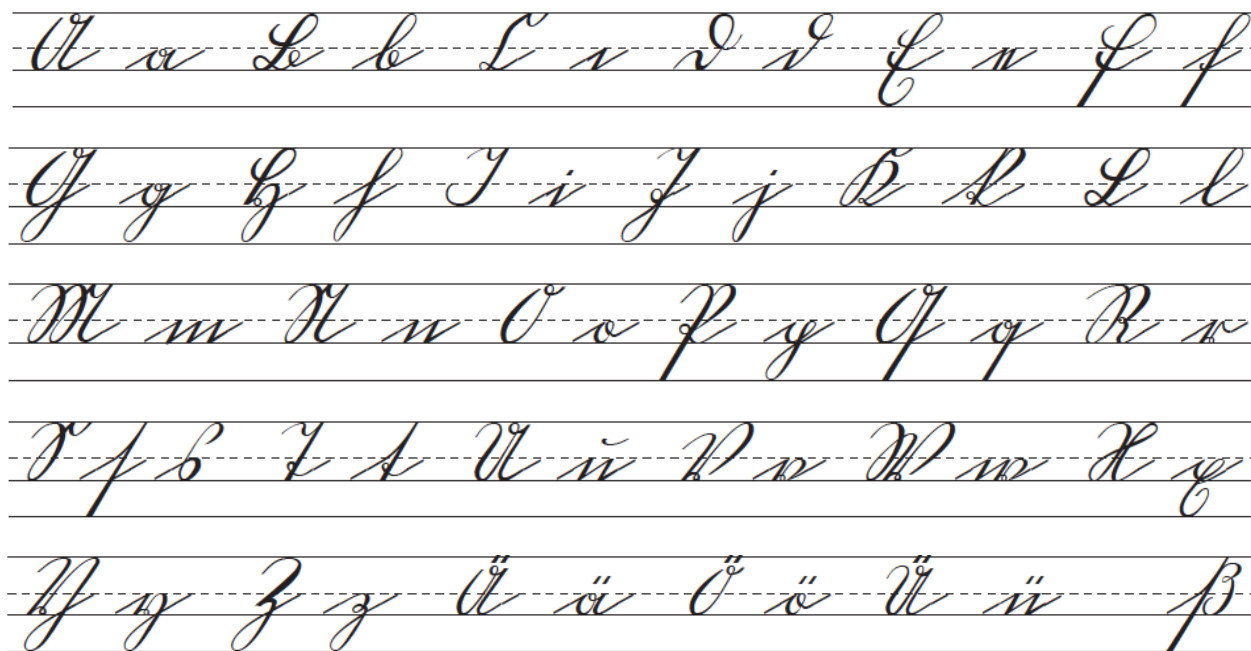 A a B b C c D d E e F f
G g H h I i J j K k L l
M m N n O o P p Q q R r
S ſ s T t U u V v W w X x
Y y Z z Ä ä Ö ö Ü ü ß